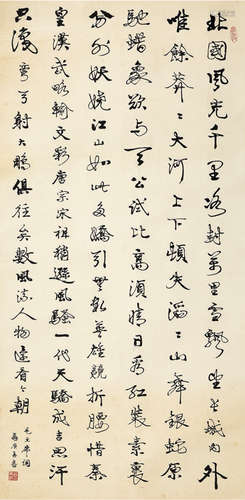 北國風光千里冰封萬里雪飄望長城內外
唯餘莽々大河上下頓失滔々山舞銀蛇原
馳蠟象欲与天公試比高須晴日看紅裝素裹
分外妖嬈江山如此多嬌引無數英雄競折腰惜秦
皇漢武略輸文彩唐宗宋祖稍遜風騷一代天驕成吉思汗
只識彎弓射大鵰俱往矣數風流人物還看今朝
毛主席詞